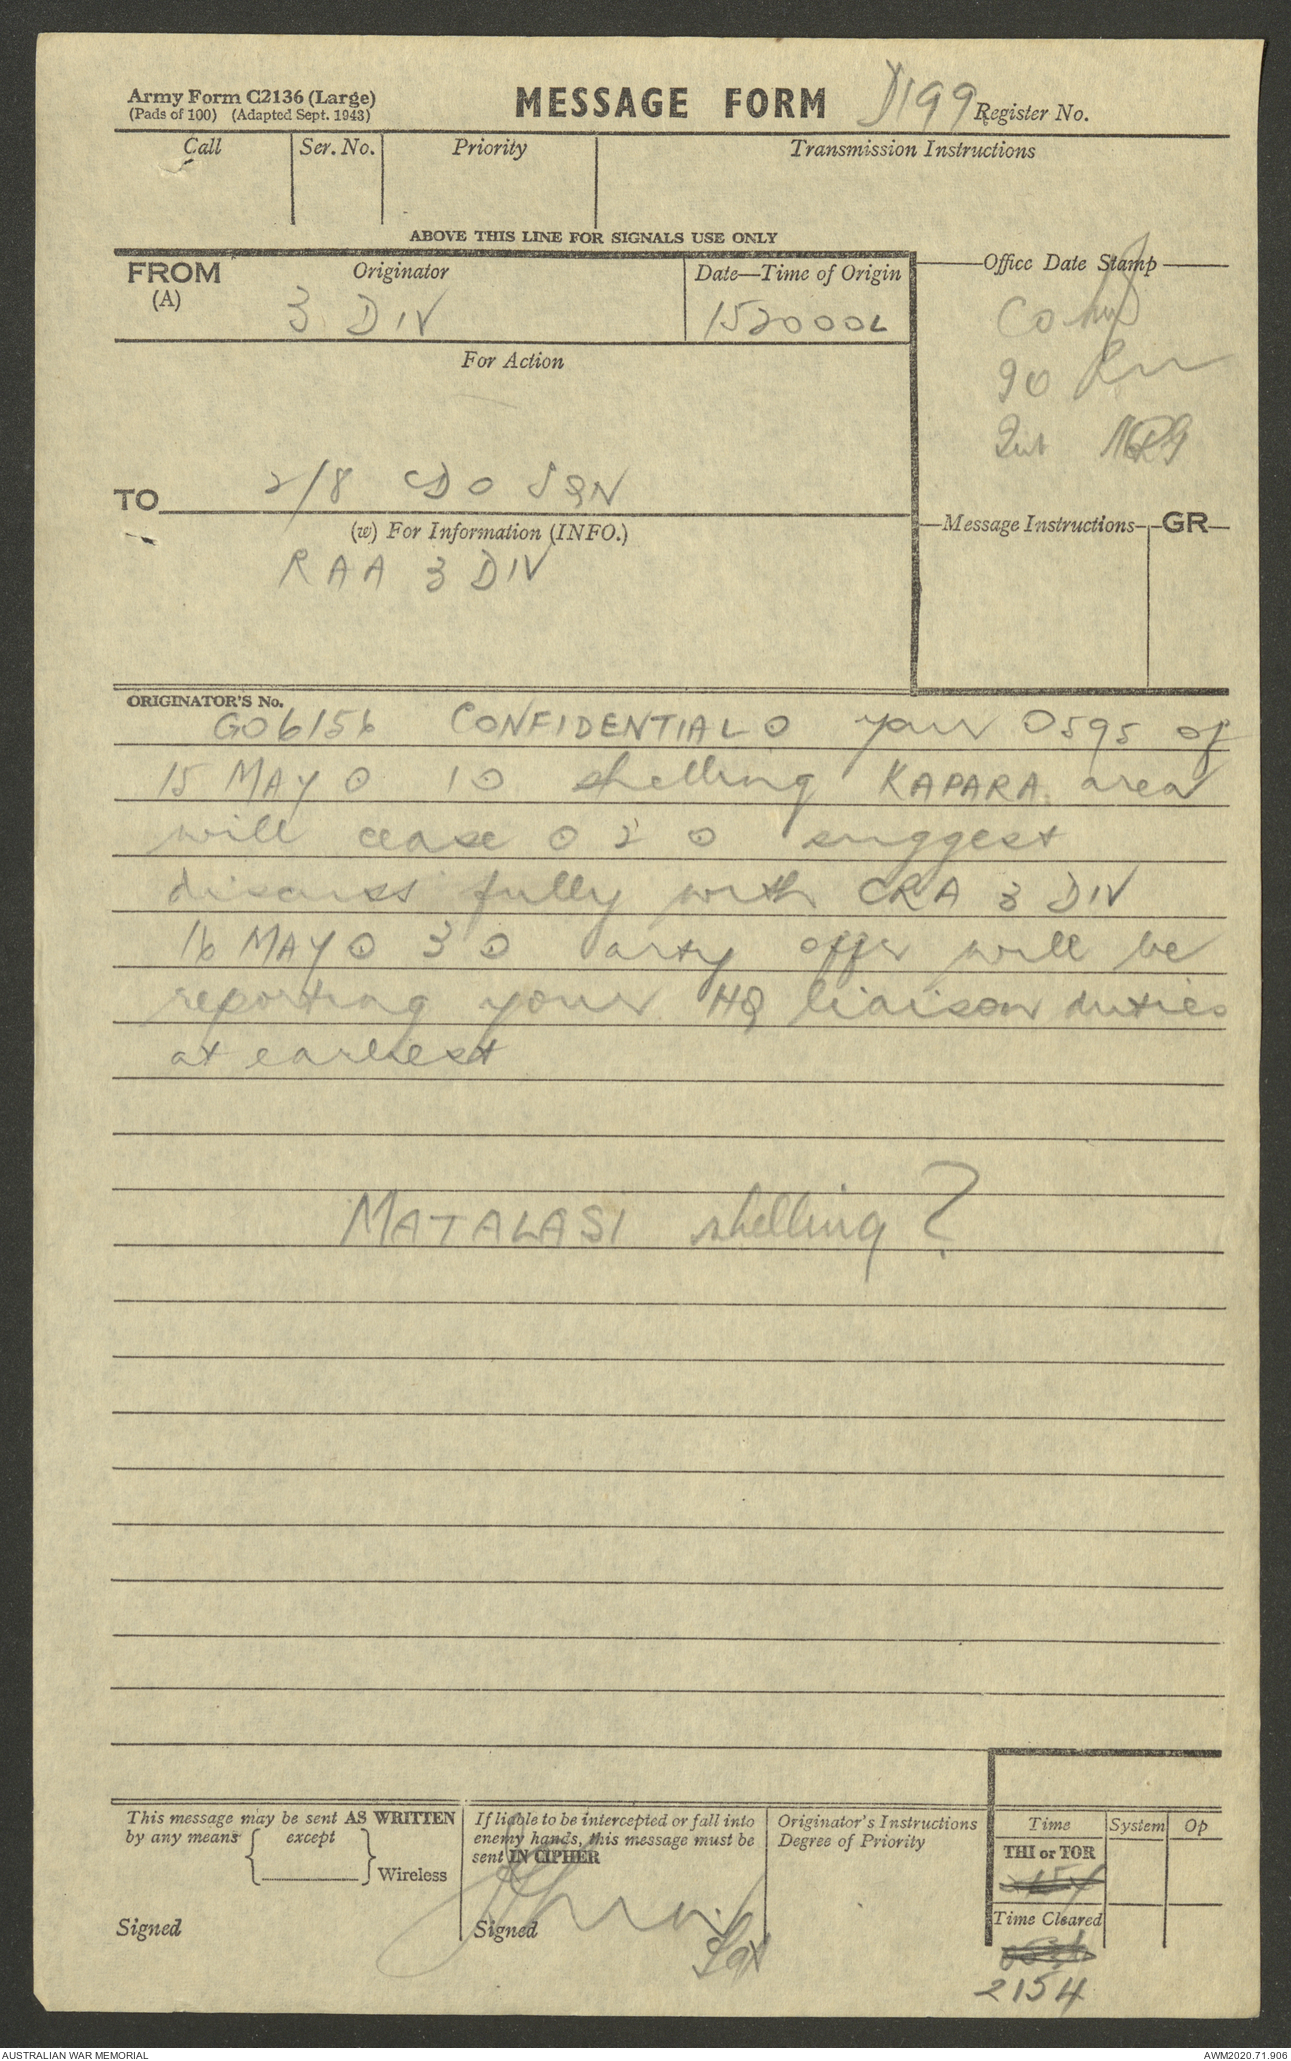 Army Form C2136 (Large)
(Pads of 100) (Adapted Sept. 1943)
MESSAGE FORM
D199
Register No.
Call
Ser. No.
Priority
Transmission Instructions
ABOVE THIS LINE FOR SIGNALS USE ONLY
FROM
(A)
Originator
3 DIV
Date—Time of Origin
152000L
Office Date Stamp
For Action
TO
2/8 CDO SQN
(w) For Information (INFO.)
RAA 3 DIV
Message Instructions
GR
ORIGINATOR'S No.
GO6156 CONFIDENTIAL O your O595 of
15 MAY O 1 O shelling KAPARA area
will cease O 2 O suggest
discuss fully with CRA 3 DIV
16 MAY O 3 O arty offr will be
reporting your HQ liaison duties
at earliest
MATALASI shelling?
This message may be sent AS WRITTEN
by any means { except } Wireless
Signed
If liable to be intercepted or fall into
enemy hands, this message must be
sent IN CIPHER
Signed
Originator's Instructions
Degree of Priority
Time
System
Op
THI or TOR
Time Cleared
2154
AUSTRALIAN WAR MEMORIAL
AWM2020.71.906